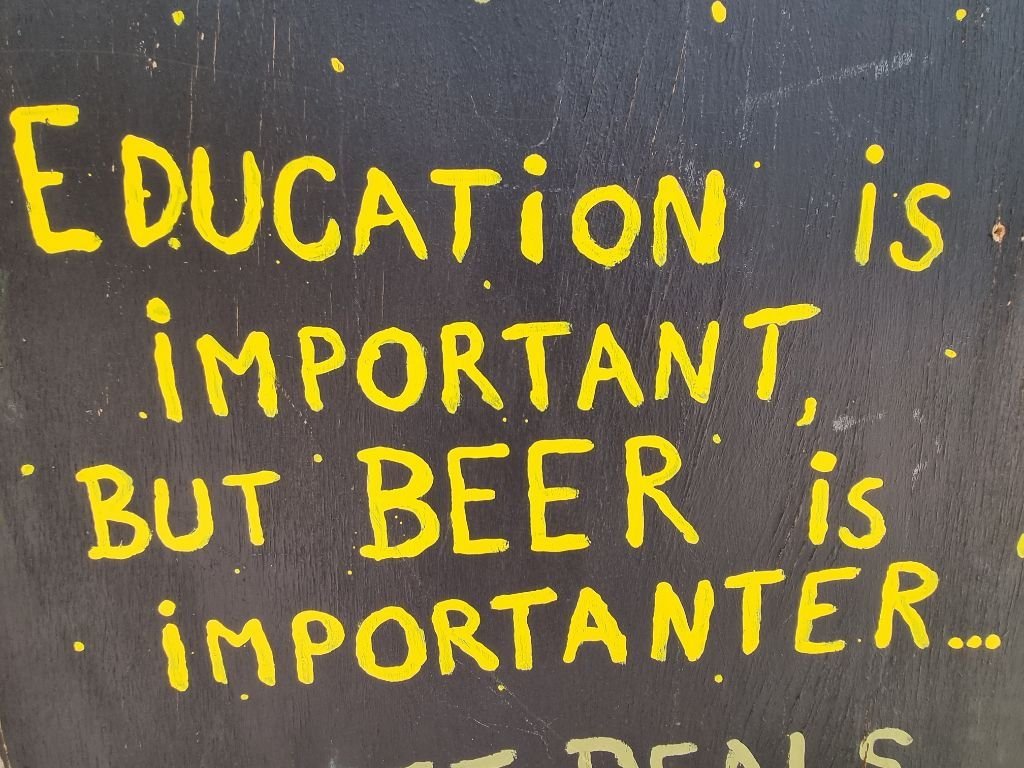 EDUCATiON is
iMPORTANT,
BUT BEER is
iMPORTANTER...
DEALS